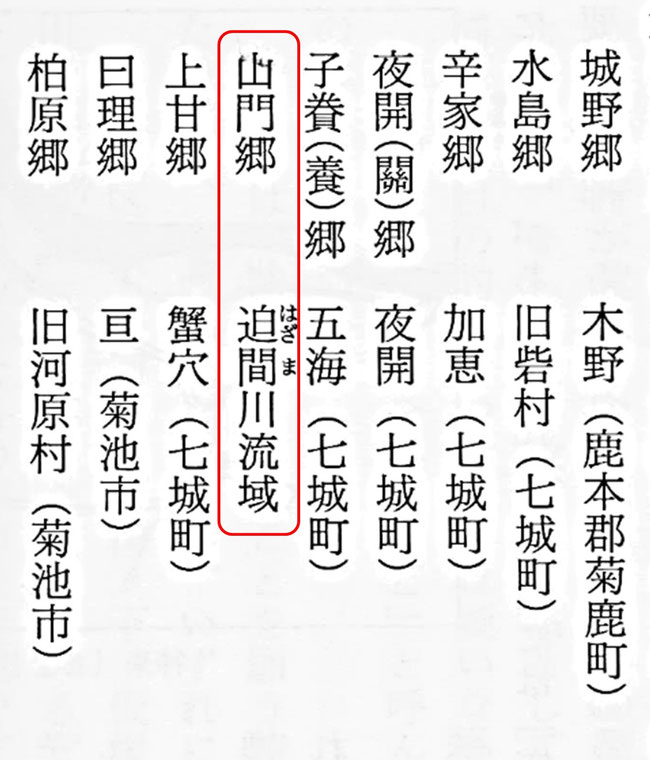 城野郷 木野（鹿本郡菊鹿町）
水島郷 旧砦村（七城町）
辛家郷 加恵（七城町）
夜開（關）郷 夜開（七城町）
子養（養）郷 五海（七城町）
山門郷 迫間川流域
はざま
上甘郷 蟹穴（七城町）
曰理郷 亘（菊池市）
柏原郷 旧河原村（菊池市）